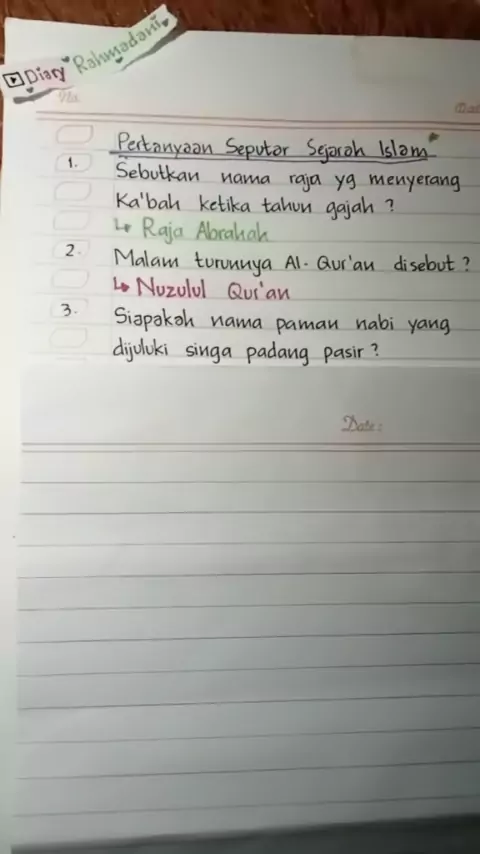 Diary Rahmadani
No
Pertanyaan Seputar Sejarah Islam
1. Sebutkan nama raja yg menyerang
Ka'bah ketika tahun gajah ?
↳ Raja Abrahah
2. Malam turunnya Al-Qur'an disebut ?
↳ Nuzulul Qur'an
3. Siapakah nama paman nabi yang
dijuluki singa padang pasir ?
Date :